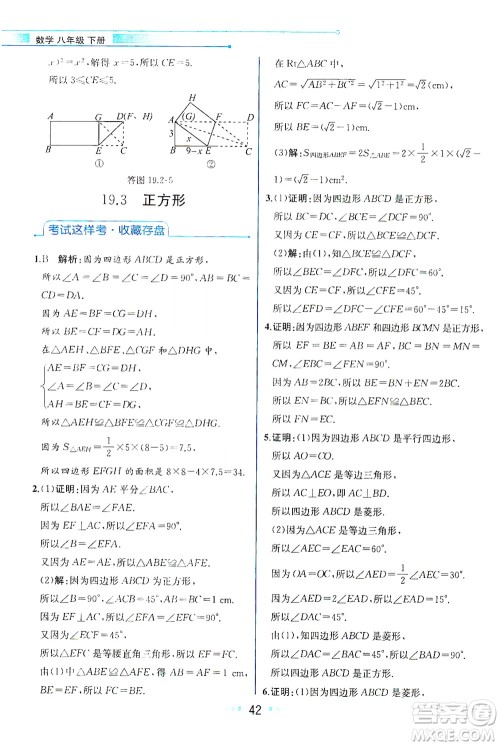 数学 八年级 下册
x)²=x²,解得 x=5,即 x=5.
所以 3≤CE≤5.
A G D(F、H)
B E C
①
H
A (G) F D
3 x
B E 9-x C
②
答图 19.2-5
19.3 正方形
考试这样考·收藏存盘
1.B 解析:因为四边形 ABCD 是正方形,
所以∠A=∠B=∠C=90°,AB=BC=
CD=DA.
因为 AE=BF=CG=DH,
所以 BE=CF=DG=AH.
在△AEH、△BFE、△CGF、△DHG 中,
AE=BF=CG=DH
∠A=∠B=∠C=∠D
AH=BE=CF=DG
所以△AEH≌△BFE≌△CGF≌△DHG.
因为 S△AEH=1/2×5×(8-5)=7.5,
所以四边形 EFGH 的面积是 8×8-4×7.5=34.
2.(1)证明:因为 AE 平分∠BAC,
所以∠BAE=∠FAE.
因为 EF⊥AC,所以∠AFE=90°.
又因为∠B=90°,
所以∠AFE=∠B.
又因为 AE=AE,
所以△ABE≌△AFE.
(2)解:因为四边形 ABCD 为正方形,
所以∠B=90°,∠ACB=45°,AB=BC=1 cm.
因为 EF⊥AC,
所以∠EFC=90°.
又因为∠ECF=45°,
所以△EFC 是等腰直角三角形,
所以 EF=FC.
由(1)中△ABE≌△AFE,得
BE=EF,AB=AF=1 cm,
所以 BE=EF=FC.
在 Rt△ABC 中,
AC=√(AB²+BC²)=√(1²+1²)=√2(cm),
所以 FC=AC-AF=(√2-1)cm,
所以 BE=(√2-1)cm.
(3)解:S四边形ABEF=2S△ABE=2×1/2×
1×(√2-1)=(√2-1)(cm²).
3.(1)证明:因为四边形 ABCD 是正方形,
所以 BC=DC,∠BCE=∠DCF=90°.
又因为 CE=CF,
所以△BCE≌△DCF.
(2)解:因为△BCE≌△DCF,
所以∠DFC=∠BEC=60°.
因为 CE=CF,所以∠CFE=45°,
所以∠EFD=15°.
4.证明:因为四边形 ABEF 和四边形 BCMN 是正方形,
所以 EF=BE=AF=AB,BN=NM=BC=
CM.
因为 AB=2BC,所以 BE=BN+EN=2BC,
所以 EN=BC.
所以 N 为 BE 的中点.
5.证明:(1)因为四边形 ABCD 是平行四边形,
所以 AO=CO.
又因为△ACE 是等边三角形,
所以 EO⊥AC,即 DB⊥AC,
所以四边形 ABCD 是菱形.
(2)因为△ACE 是等边三角形,
所以∠AEC=60°.
因为 EO⊥AC,所以∠AEO=1/2∠AEC=30°.
因为∠AED=2∠EAD,所以∠EAD=15°,
所以∠ADO=∠EAD+∠AED=45°.
又由(1)知,四边形 ABCD 是菱形,
所以∠ADC=2∠ADO=90°,
所以四边形 ABCD 是正方形.
6.(1)证明:因为四边形 ABCD 是矩形,
42